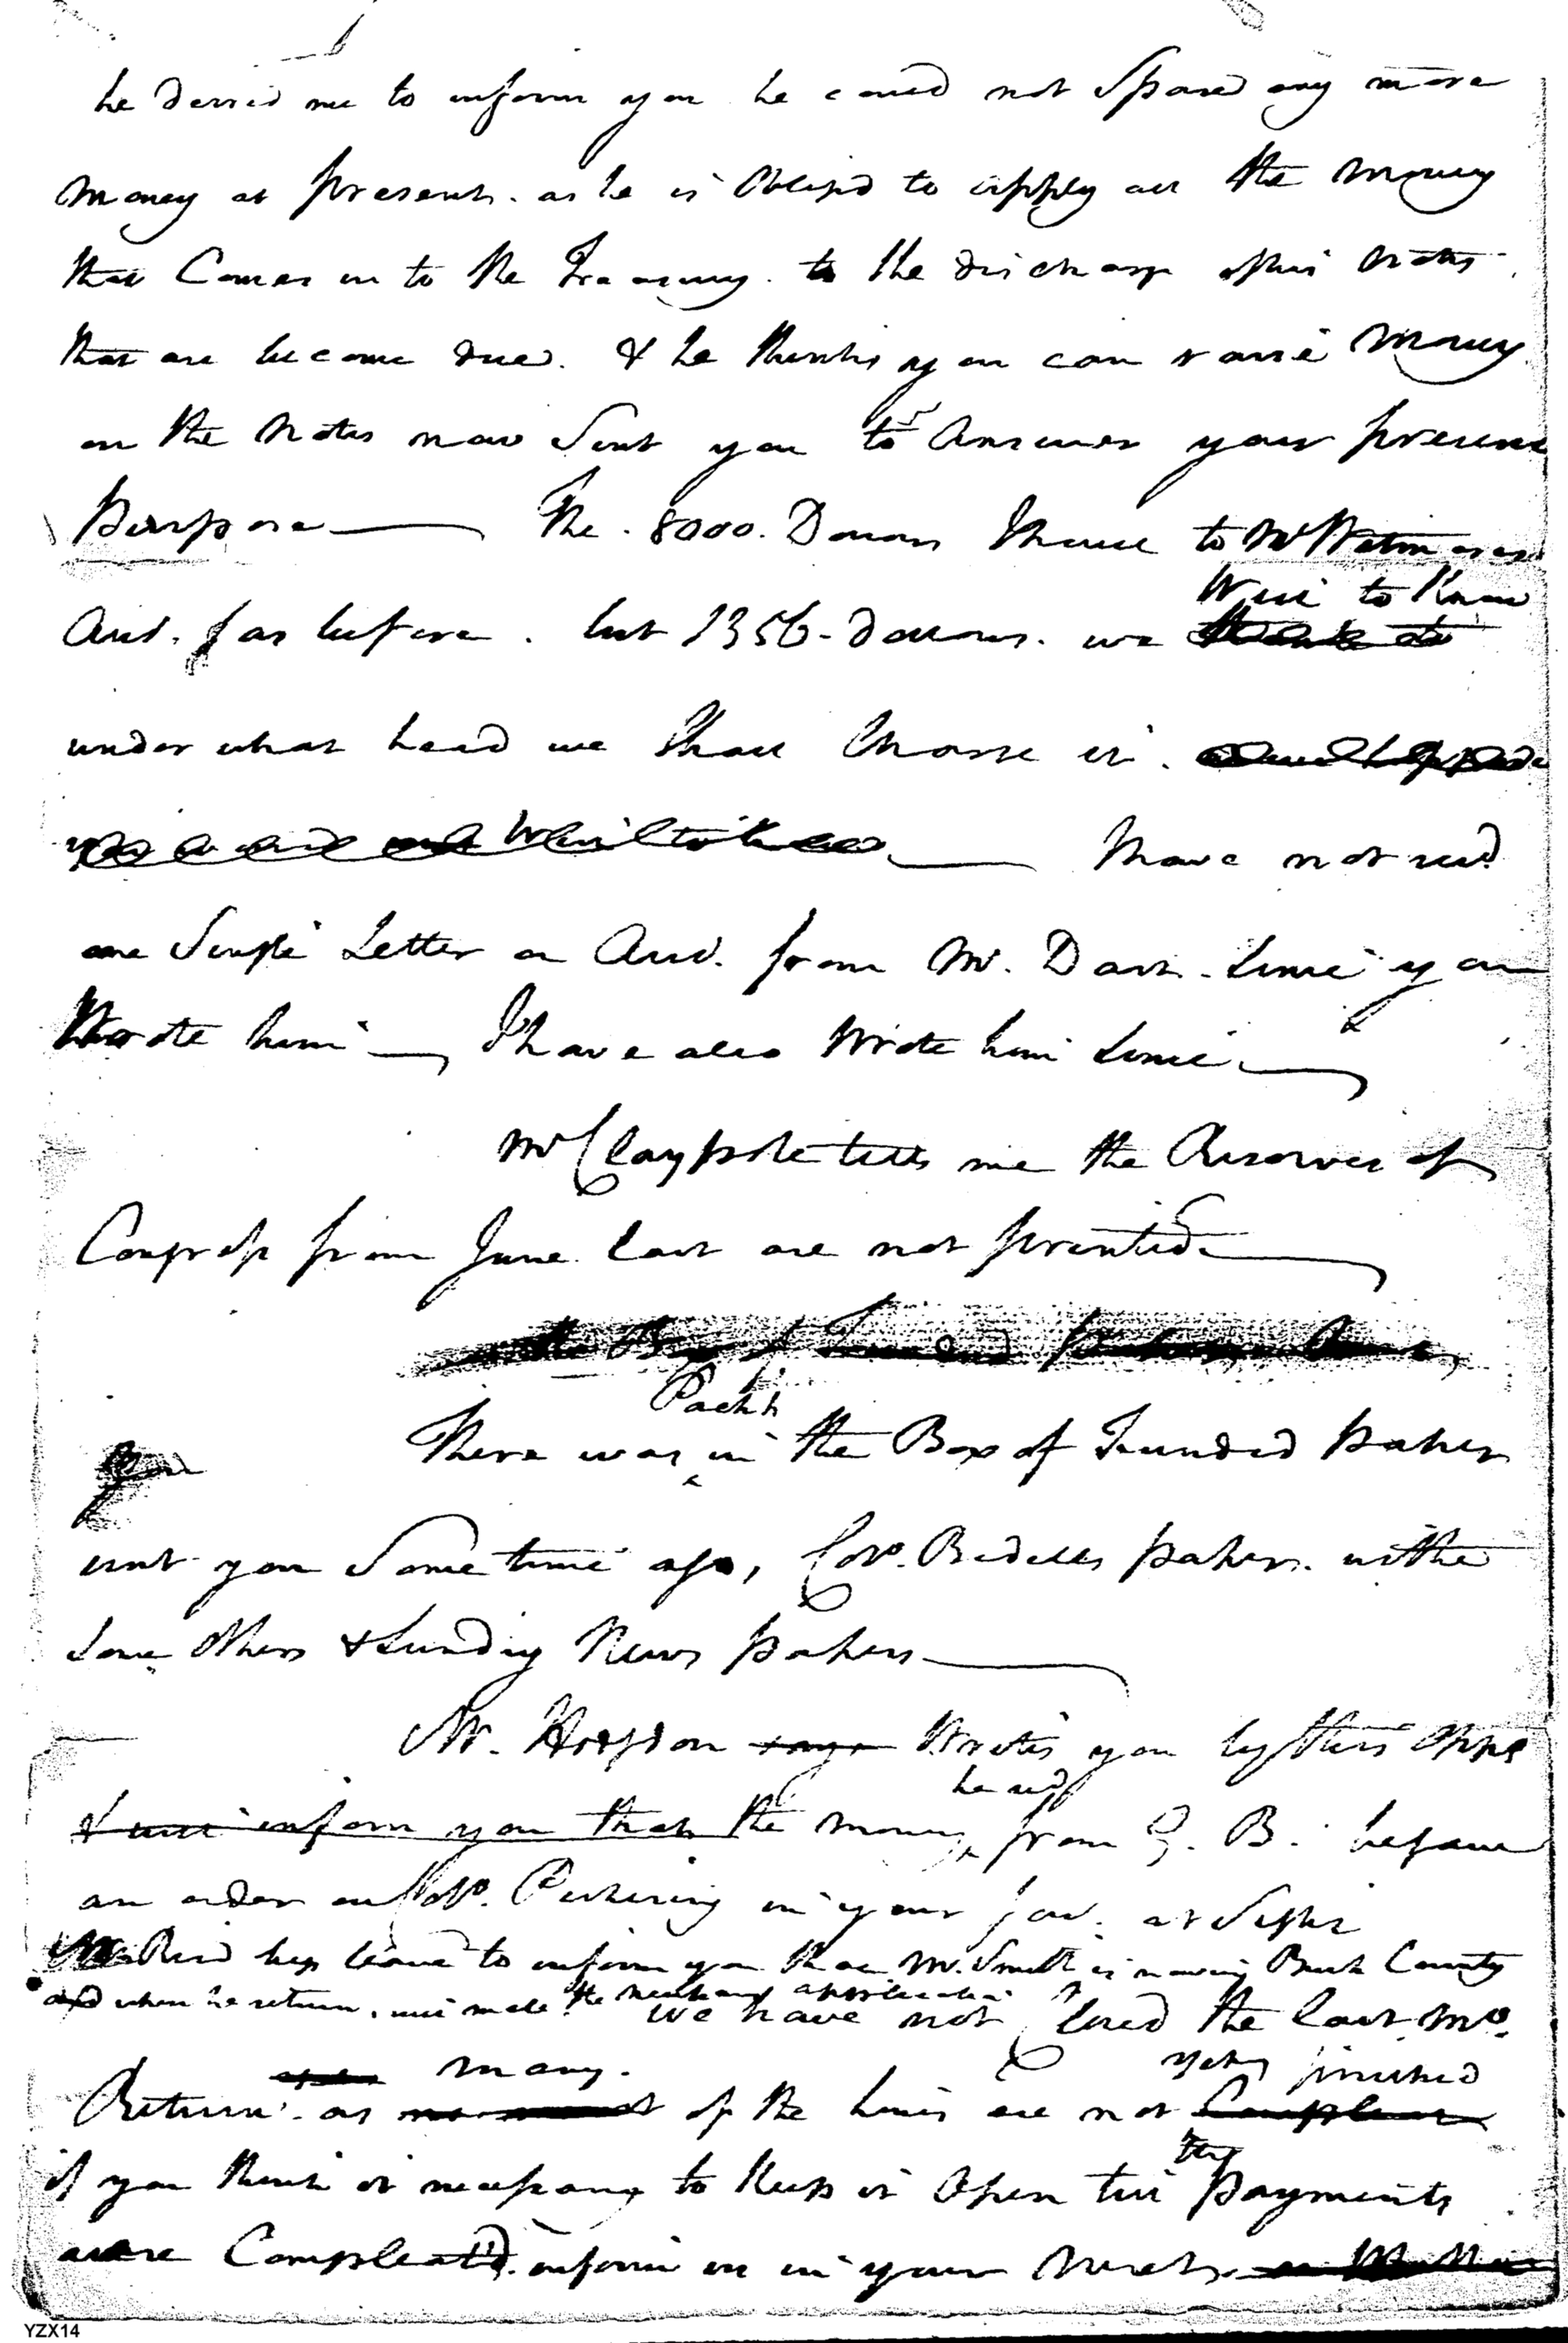 he desired me to inform you he could not Spare any more
money at present. as he is Obliged to apply all the money
that Comes in to the Treasury. to the discharge of his notes
that are become due. & he thinks you can raise Money
on the Notes now Sent you to Answer your present
Purpose — The 8000. Dollars I have to Mr
Acct. for before. but 1356 dollars. we Wish to Know
under what head we Shall Charge it.
— I have not recd
one Single Letter or Acct. from Mr. Dav. Since you
Wrote him — I have also Wrote him Since —
Mr Claypole tells me the Resolves of
Congress from June last are not printed —
There was Packt in the Box of Funded papers
sent you Some time ago, Colo. Bedells papers. with
Some Others & Sundry News papers —
Mr. Hodgdon says Writes you by this Oppo
& will inform you that the money he recd from G. B. he gave
an order on Colo. Pickering in your fav. at Sight
begs leave to inform you that Mr. Smith is now in Buck County
and when he returns, will make the necessary application
We have not Closed the last Mo.
many. yet finished
Return. as of the hires are not Compleat
if you think it necessary to Keep it Open till the payments
are Compleatd. inform us in your next.
YZX14